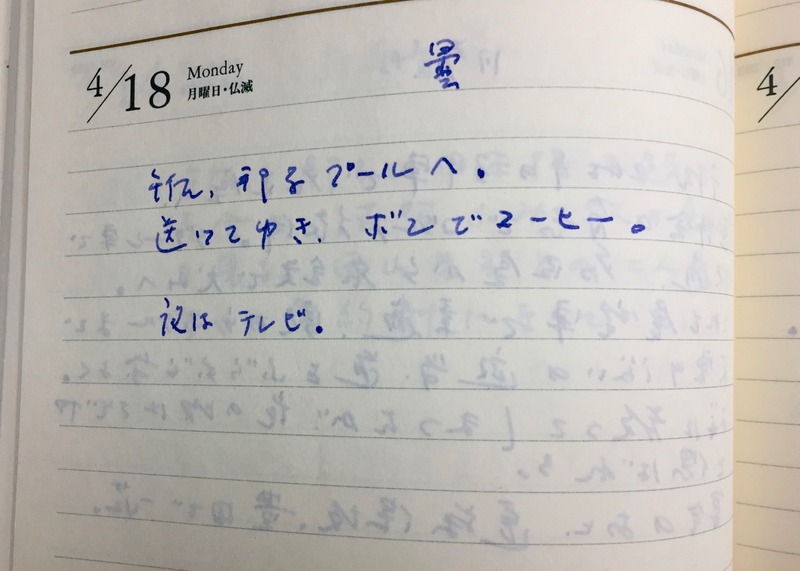 4/18 Monday
月曜日・仏滅
曇
プールへ。
送ってゆき、ボンでコーヒー。
夜はテレビ。
4/